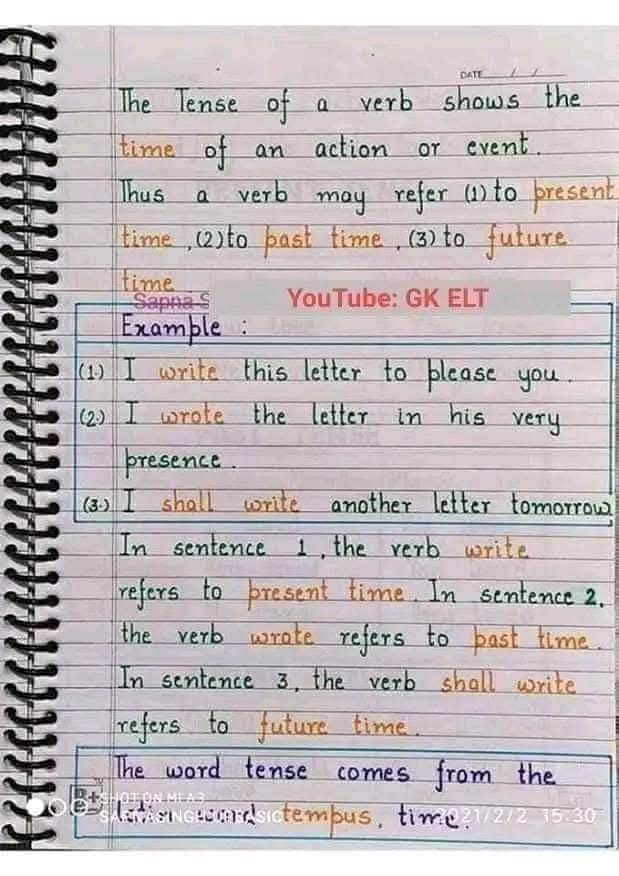 DATE __/__/__
The Tense of a verb shows the
time of an action or event.
Thus a verb may refer (1) to present
time, (2) to past time, (3) to future
time
Sapna S
YouTube: GK ELT
Example :
(1.) I write this letter to please you.
(2.) I wrote the letter in his very
presence.
(3.) I shall write another letter tomorrow
In sentence 1, the verb write
refers to present time. In sentence 2,
the verb wrote refers to past time.
In sentence 3, the verb shall write
refers to future time.
The word tense comes from the
Latin word tempus, time.
SHOT ON MI A3
2021/2/2 15:30